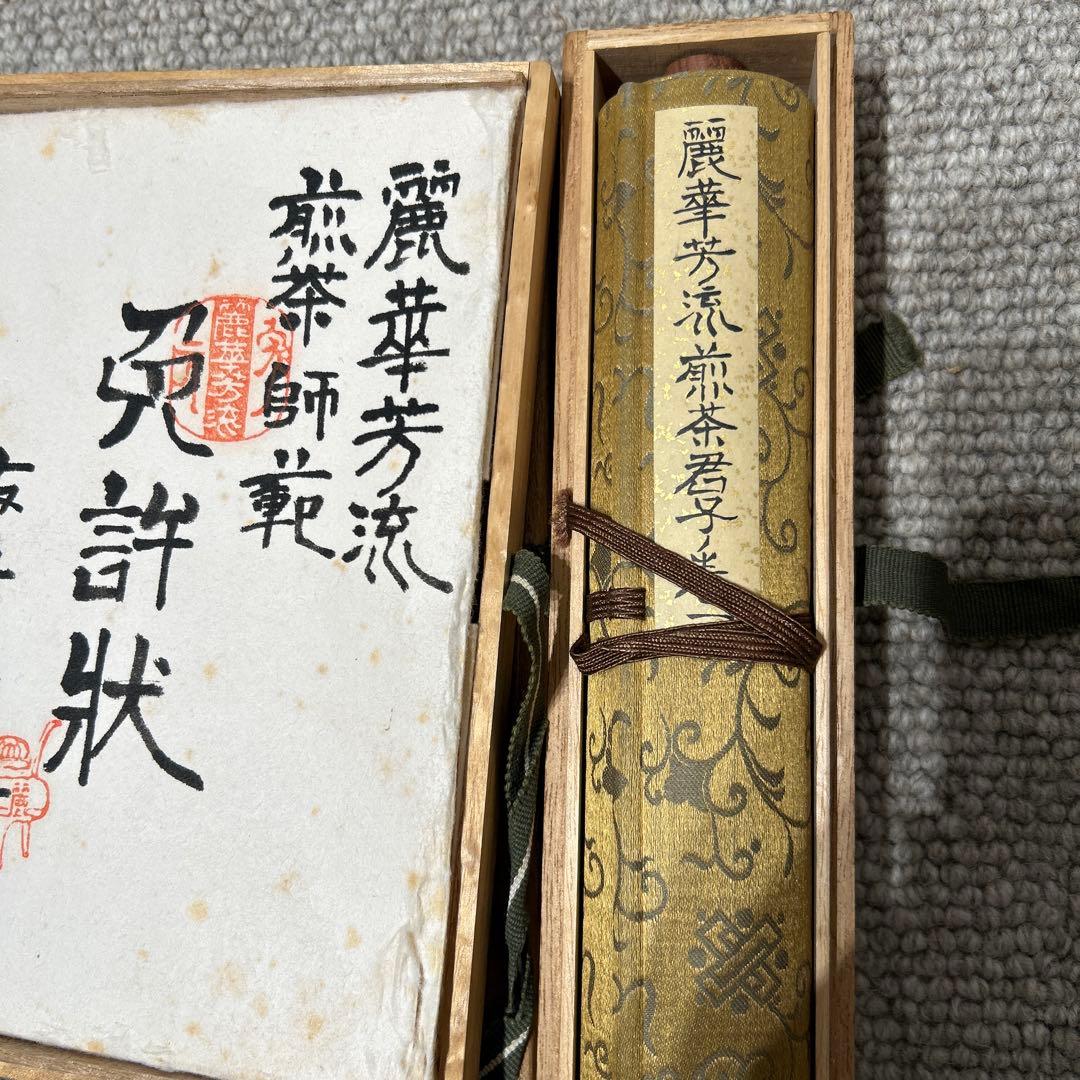 麗華芳流
煎茶師範
免許状
麗華芳流
麗華芳流煎茶君子